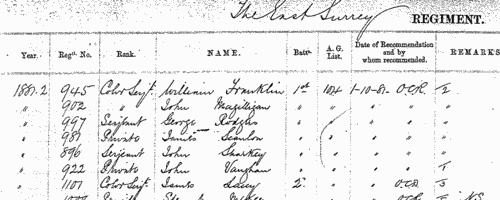 The East Surrey REGIMENT.
Year. Regtl. No. Rank. NAME. Batn. A. G. List. Date of Recommendation and by whom recommended. REMARKS
1881.2 945 Color Serjt. William Franklin 1st 104 1-10-81 O.C.R. 2
" 902 " John Magilligan " " " " "
" 997 Serjeant George Rodgers " " " " "
" 987 Private James Scanlon " " " " "
" 896 Serjeant John Sharkey " " " " "
" 922 Private John Vaughan " " " " 1
" 1101 Color Serjt. James Lacey 2. " " O.C.R. 3